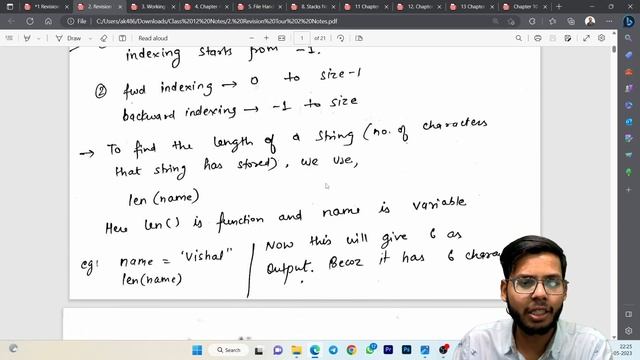 *1 Revision
2. Revision
3. Working
4. Chapter
5. File Han
8. Stacks
11 Chapter
12. Chapter
13 Chapter
Chapter 1
File
C:/Users/ak486/Downloads/Class%2012%20Notes/2.%20Revision%20Tour%202%20Notes.pdf
Read aloud
1 of 21
indexing starts from -1.
② fwd indexing → 0 to size-1
backward indexing → -1 to size
→ To find the length of a string (no. of characters
that string has stored), we use,
len (name)
Here len() is function and name is variable
eg: name = "Vishal"
len(name)
Now this will give 6 as
Output. Becoz it has 6 charac
Search
ENG
IN
22:25
05-2023